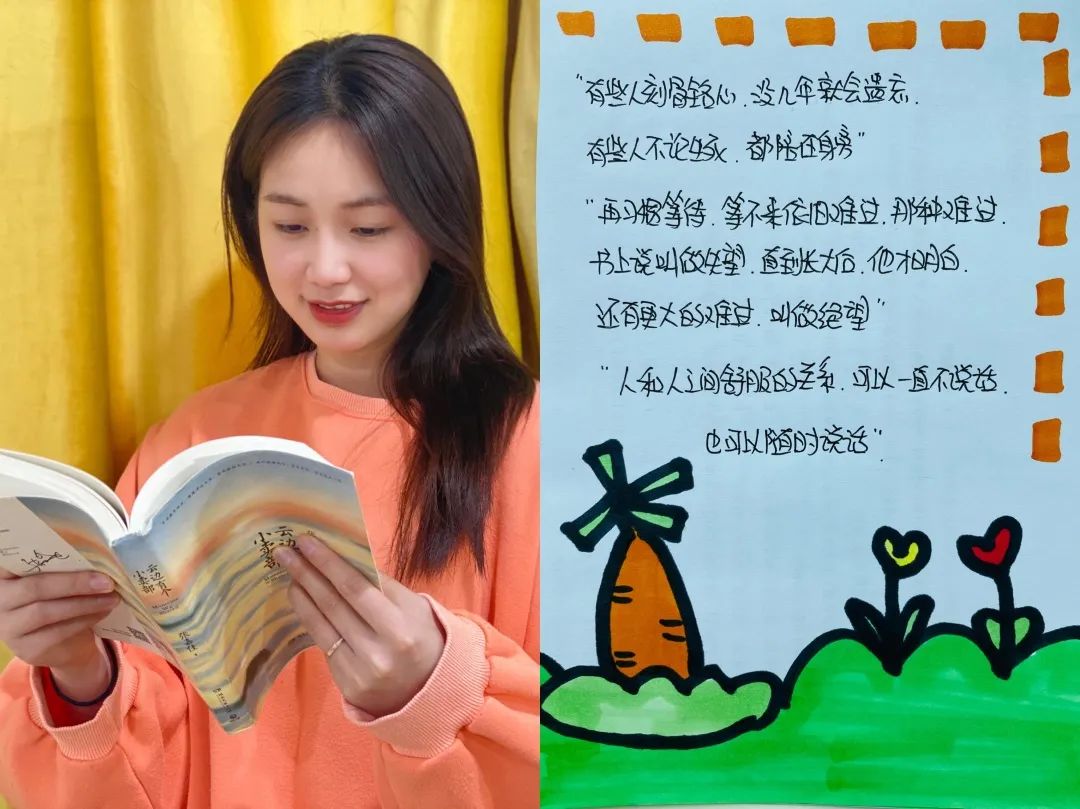 云边有个
小卖部
张嘉佳
云边
小卖部
"有些人刻骨铭心，没几年就会遗忘．
有些人不论生死，都陪在身旁"
"再习惯等待，等不来依旧难过，那种难过．
书上说叫做失望，直到长大后，他才明白．
还有更大的难过，叫做绝望"
"人和人之间舒服的关系，可以一直不说话．
也可以随时说话"．